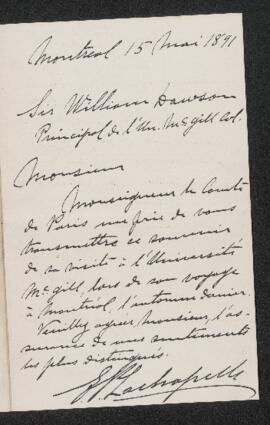 Montreal 15 Mai 1891
Sir William Dawson
Principal de l'Un. McGill Col.
Monsieur
Monseigneur le Comte
de Paris me prie de vous
transmettre ce souvenir
de sa visite à l'Université
McGill, lors de son voyage
à Montréal, l'automne dernier.
Veuillez agréer, Monsieur, l'as-
surance de mes sentiments
les plus distingués.
E P Lachapelle